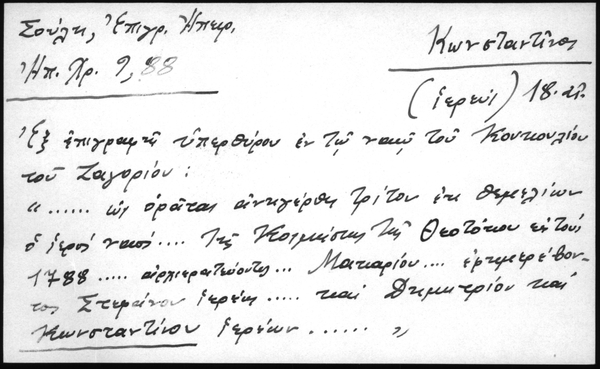 Σούλη, Ἐπιγρ. Ἠπειρ.
Ἠπ. Χρ. 9, 88
Κωνσταντῖνος
(ἱερεύς) 18. αἰ.
Ἐξ ἐπιγραφῆς ὑπερθύρου ἐν τῷ ναῷ τοῦ Κουκουλίου
τοῦ Ζαγορίου:
"...... ὡς ὁρᾶται ἀνηγέρθη τρίτον ἐκ θεμελίων
ὁ ἱερός ναός.... τῆς Κοιμήσεως τῆς Θεοτόκου ἐν ἔτους
1788 ..... ἀρχιερατεύοντος... Μακαρίου.... ἐφημερεύον-
τος Στεφάνου ἱερέως ..... καί Δημητρίου καί
Κωνσταντίνου ἱερέων ...... "